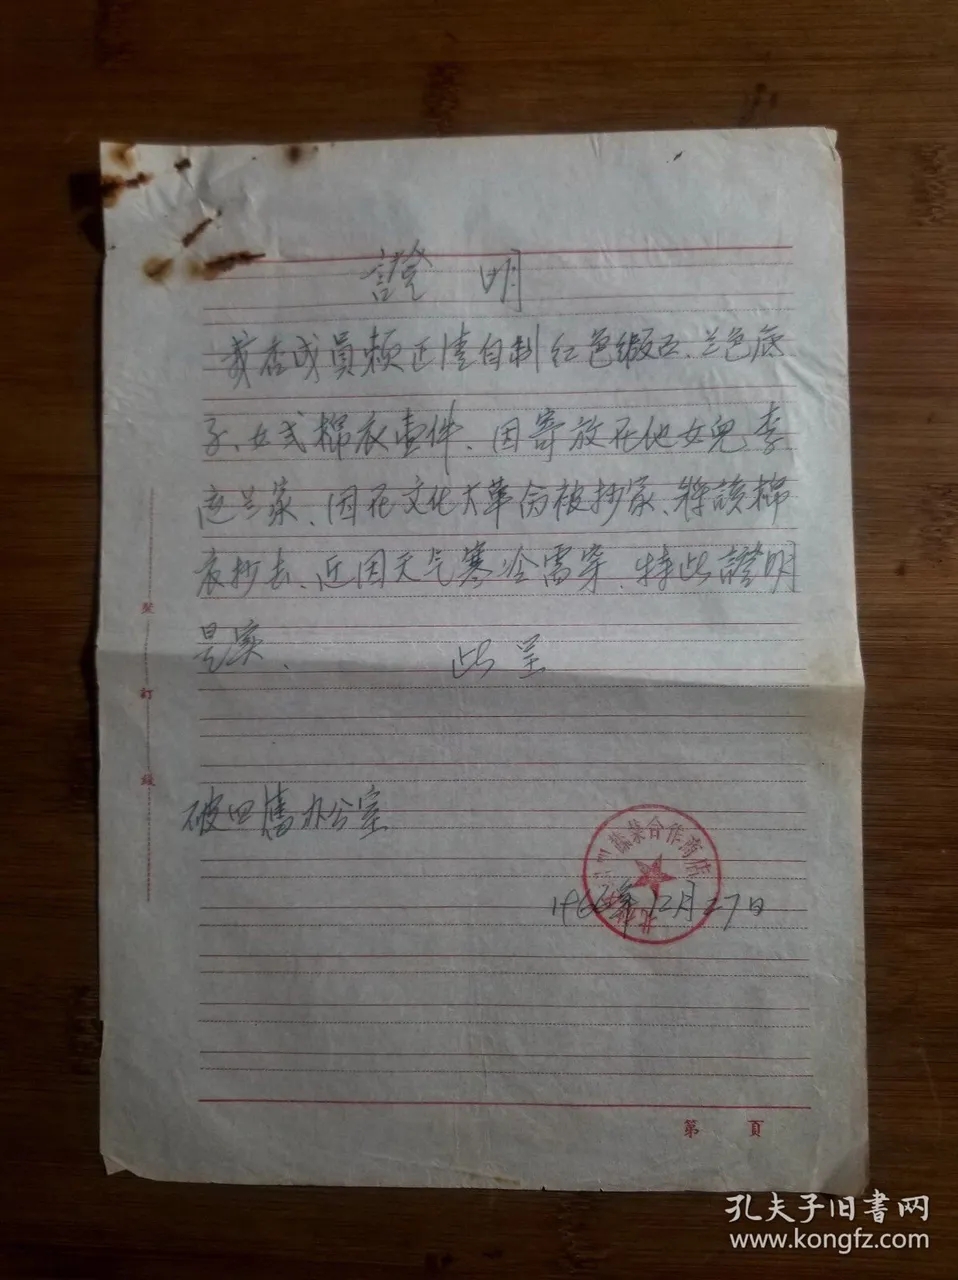 證明
我店成員賴正清自制红色缎面、兰色底
子、女式棉衣壹件、因寄放在他女兒李
家、因在文化大革命被抄家、将該棉
衣抄去、近因天气寒冷需穿、特此證明
是实、 此呈
破四舊办公室
合作商店
1966年12月27日
裝訂線
第 頁
孔夫子旧書网
www.kongfz.com